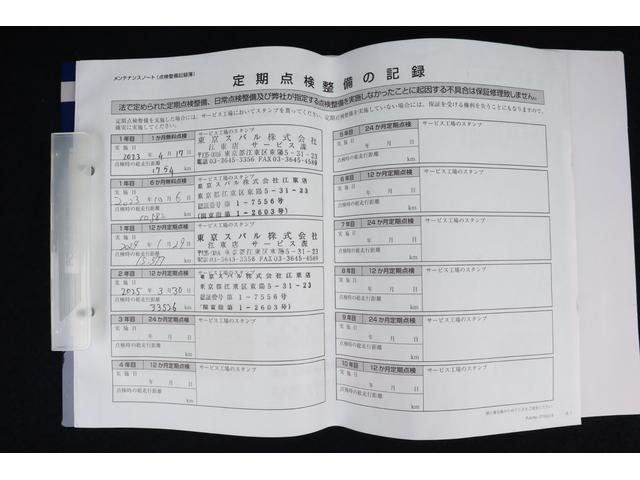 メンテナンスノート（点検整備記録簿）
定期点検整備の記録
法で定められた定期点検整備、日常点検整備及び弊社が指定する点検整備を実施しなかったことに起因する不具合は保証修理致しません。
定期点検整備を実施した場合には、サービス工場においてスタンプを貰ってください。定期点検整備を実施していない場合には、保証を受ける権利を失うことにもなりますので、
確実に実施してください。
1年目 1か月無料点検 サービス工場のスタンプ
実施日
2023年4月17日
点検時の総走行距離
1754 km
東京スバル株式会社
江東店 サービス課
〒135-0016 東京都江東区東陽5-31-23
電話03-3645-3356 FAX03-3645-4569
1年目 6か月無料点検 サービス工場のスタンプ
実施日
2023年10月6日
点検時の総走行距離
km
東京スバル株式会社江東店
東京都江東区東陽5-31-23
認証番号 第1-7556号
(関東指第1-2603号)
1年目 12か月定期点検 サービス工場のスタンプ
実施日
2024年1月29日
点検時の総走行距離
15577 km
東京スバル株式会社
江東店 サービス課
〒135-0016 東京都江東区東陽5-31-23
電話03-3645-3356 FAX03-3645-4569
2年目 12か月定期点検 サービス工場のスタンプ
実施日
2025年3月30日
点検時の総走行距離
33526 km
東京スバル株式会社江東店
東京都江東区東陽5-31-23
認証番号 第1-7556号
(関東指第1-2603号)
3年目 24か月定期点検 サービス工場のスタンプ
実施日
年 月 日
点検時の総走行距離
km
4年目 12か月定期点検 サービス工場のスタンプ
実施日
年 月 日
点検時の総走行距離
km
5年目 24か月定期点検 サービス工場のスタンプ
実施日
年 月 日
点検時の総走行距離
km
6年目 12か月定期点検 サービス工場のスタンプ
実施日
年 月 日
点検時の総走行距離
km
7年目 24か月定期点検 サービス工場のスタンプ
実施日
年 月 日
点検時の総走行距離
km
8年目 12か月定期点検 サービス工場のスタンプ
実施日
年 月 日
点検時の総走行距離
km
9年目 24か月定期点検 サービス工場のスタンプ
実施日
年 月 日
点検時の総走行距離
km
10年目 12か月定期点検 サービス工場のスタンプ
実施日
年 月 日
点検時の総走行距離
km